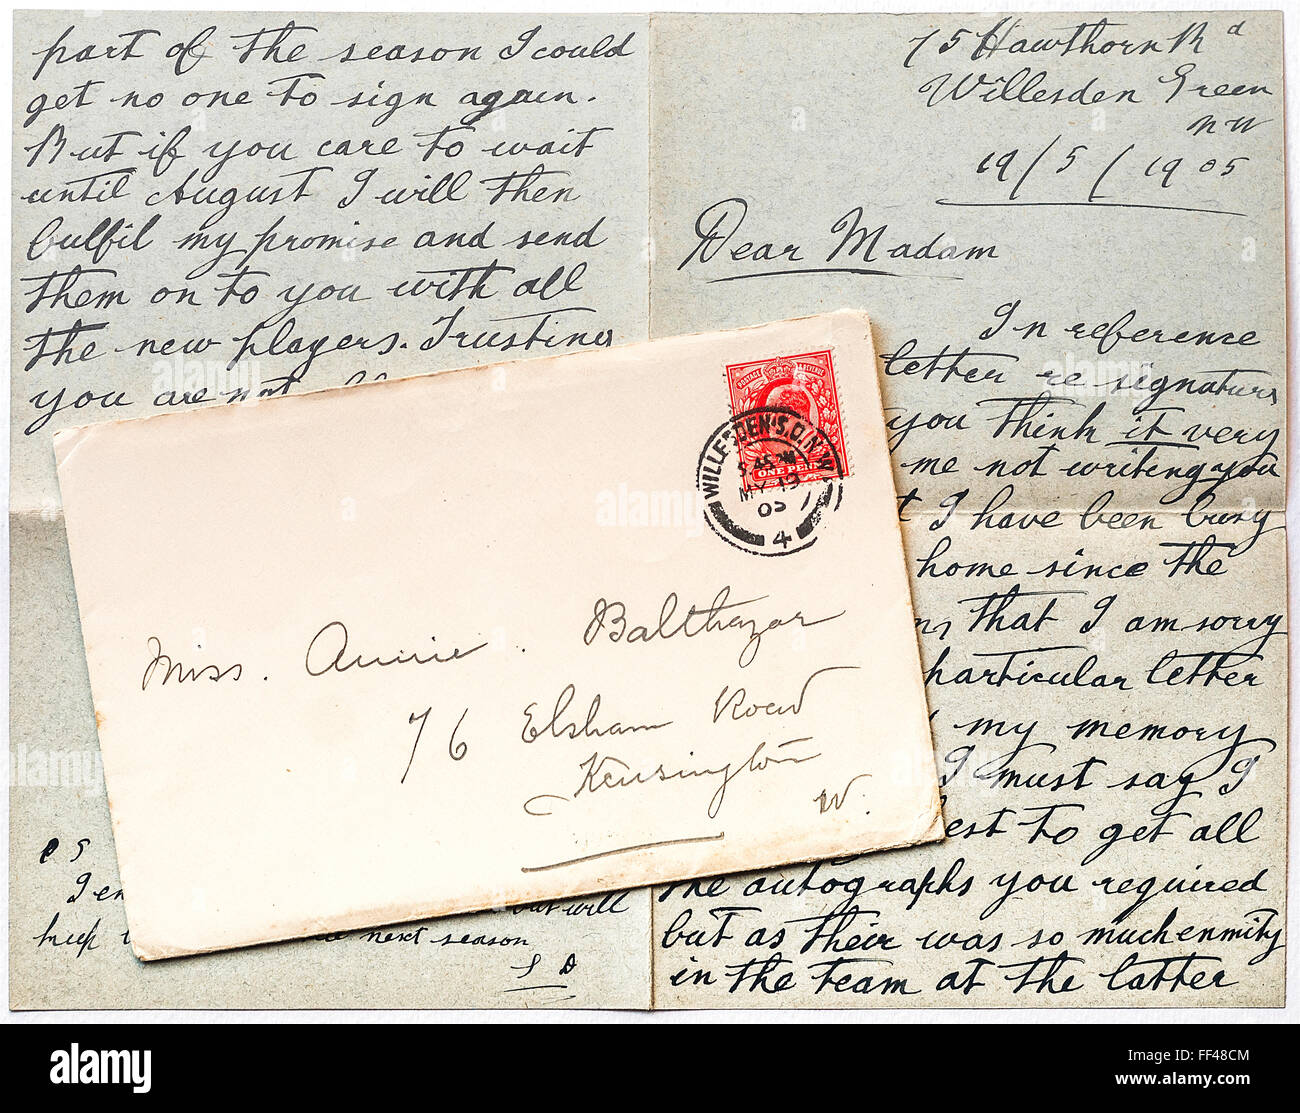 75 Hawthorn Rd
Willesden Green
NW
19/5/1905
Dear Madam
In reference
letter re signature
you think it very
me not writing you
I have been busy
home since the
that I am sorry
particular letter
my memory
I must say I
to get all
the autographs you required
but as their was so much enmity
in the team at the latter
part of the season I could
get no one to sign again.
But if you care to wait
until August I will then
fulfil my promise and send
them on to you with all
the new players. Trusting
you are not
but will
next season
S D
POSTAGE & REVENUE
ONE PENNY
WILLESDEN S.O. N.W.
5.45 PM
MY 19
05
4
Miss. Annie. Balthazar
76 Elsham Road
Kensington
W.
alamy
alamy stock photo
FF48CM
www.alamy.com